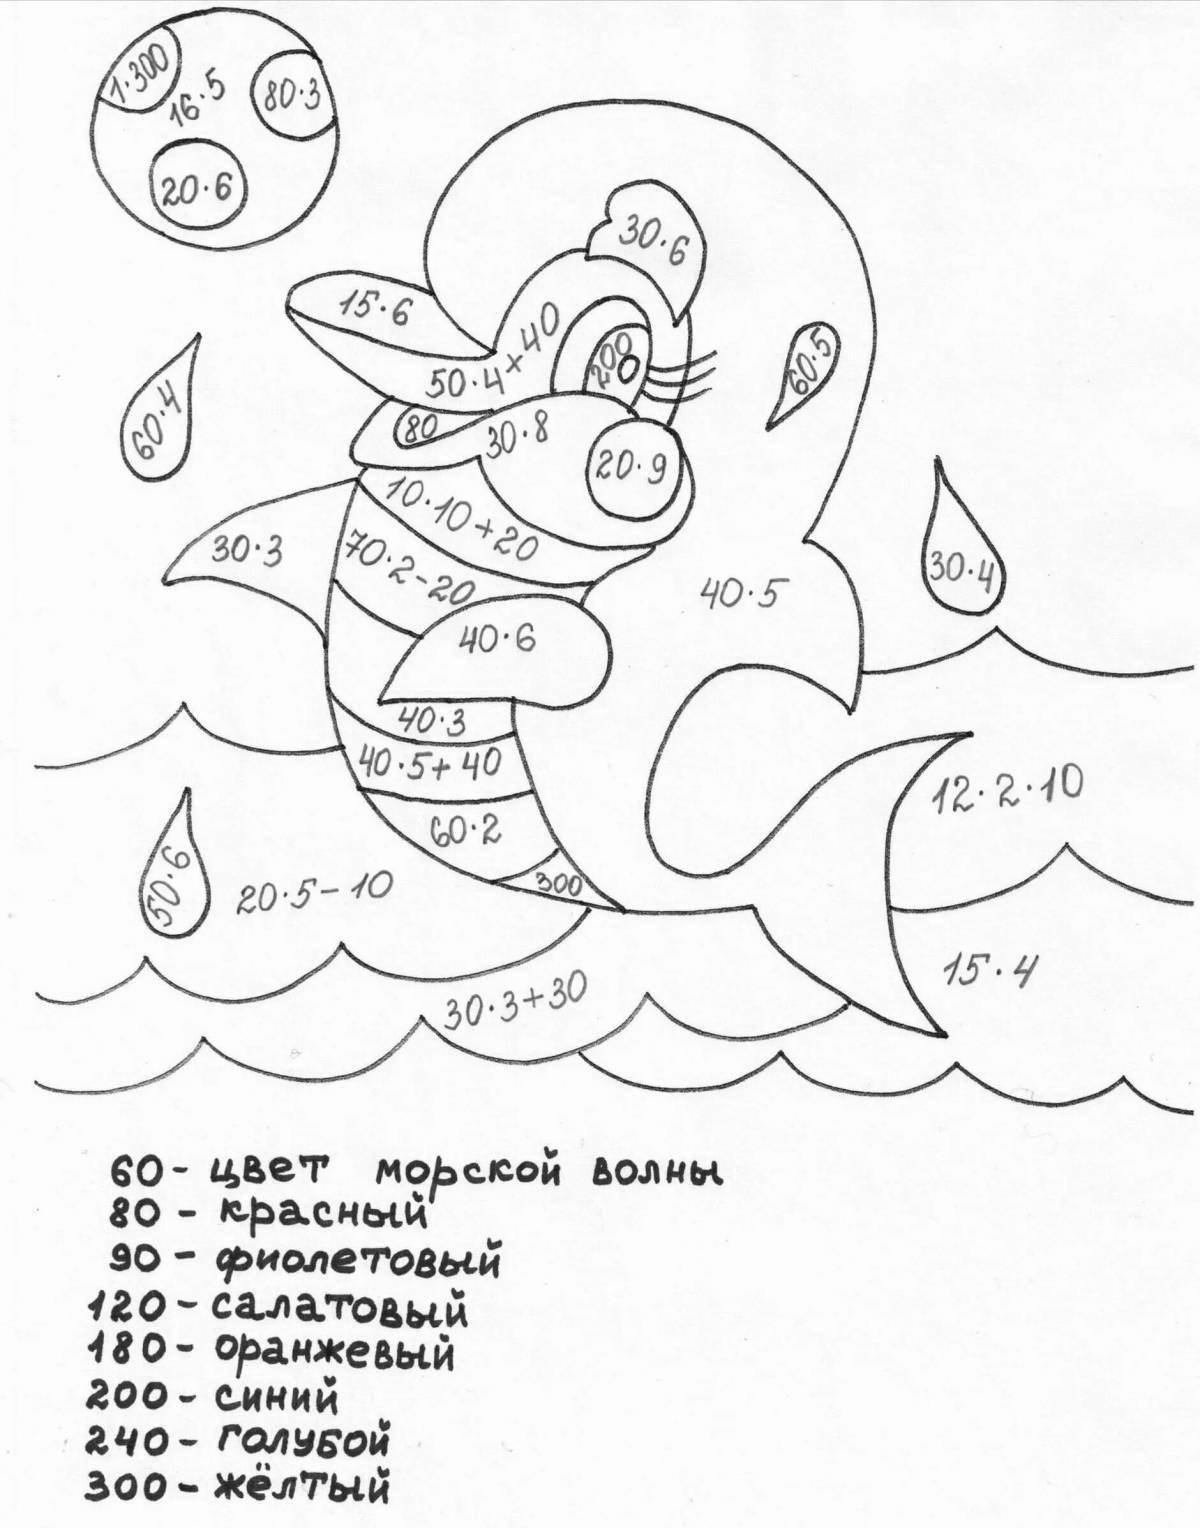 1·300
16·5
80·3
20·6
30·6
15·6
50·4+40
200
60·5
60·4
80
30·8
20·9
10·10+20
30·3
70·2-20
40·5
30·4
40·6
40·3
40·5+40
12·2·10
60·2
50·6
20·5-10
300
15·4
30·3+30
60- цвет морской волны
80 - красный
90 - фиолетовый
120 - салатовый
180 - оранжевый
200 - синий
240 - голубой
300 - жёлтый